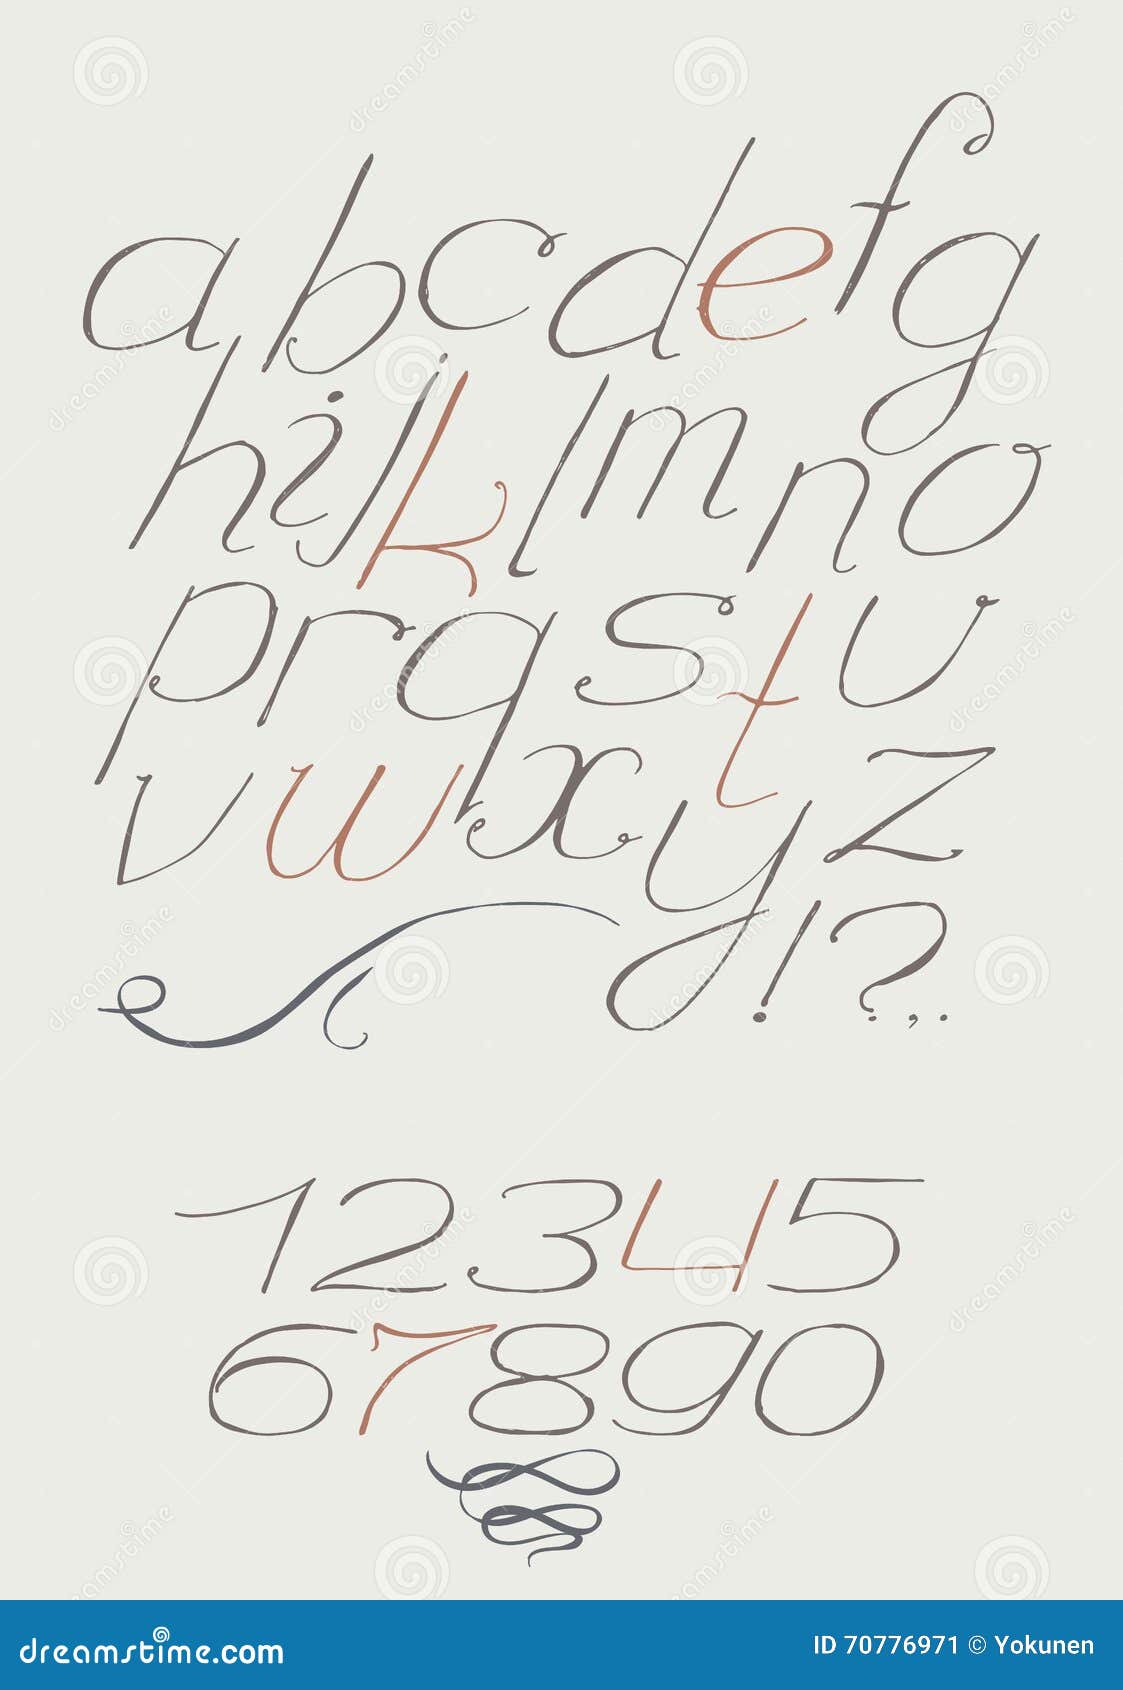 abcdefg
hijklmno
prqstu
vwxyz
!?.,..
12345
67890
dreamstime.com
ID 70776971 © Yokunen